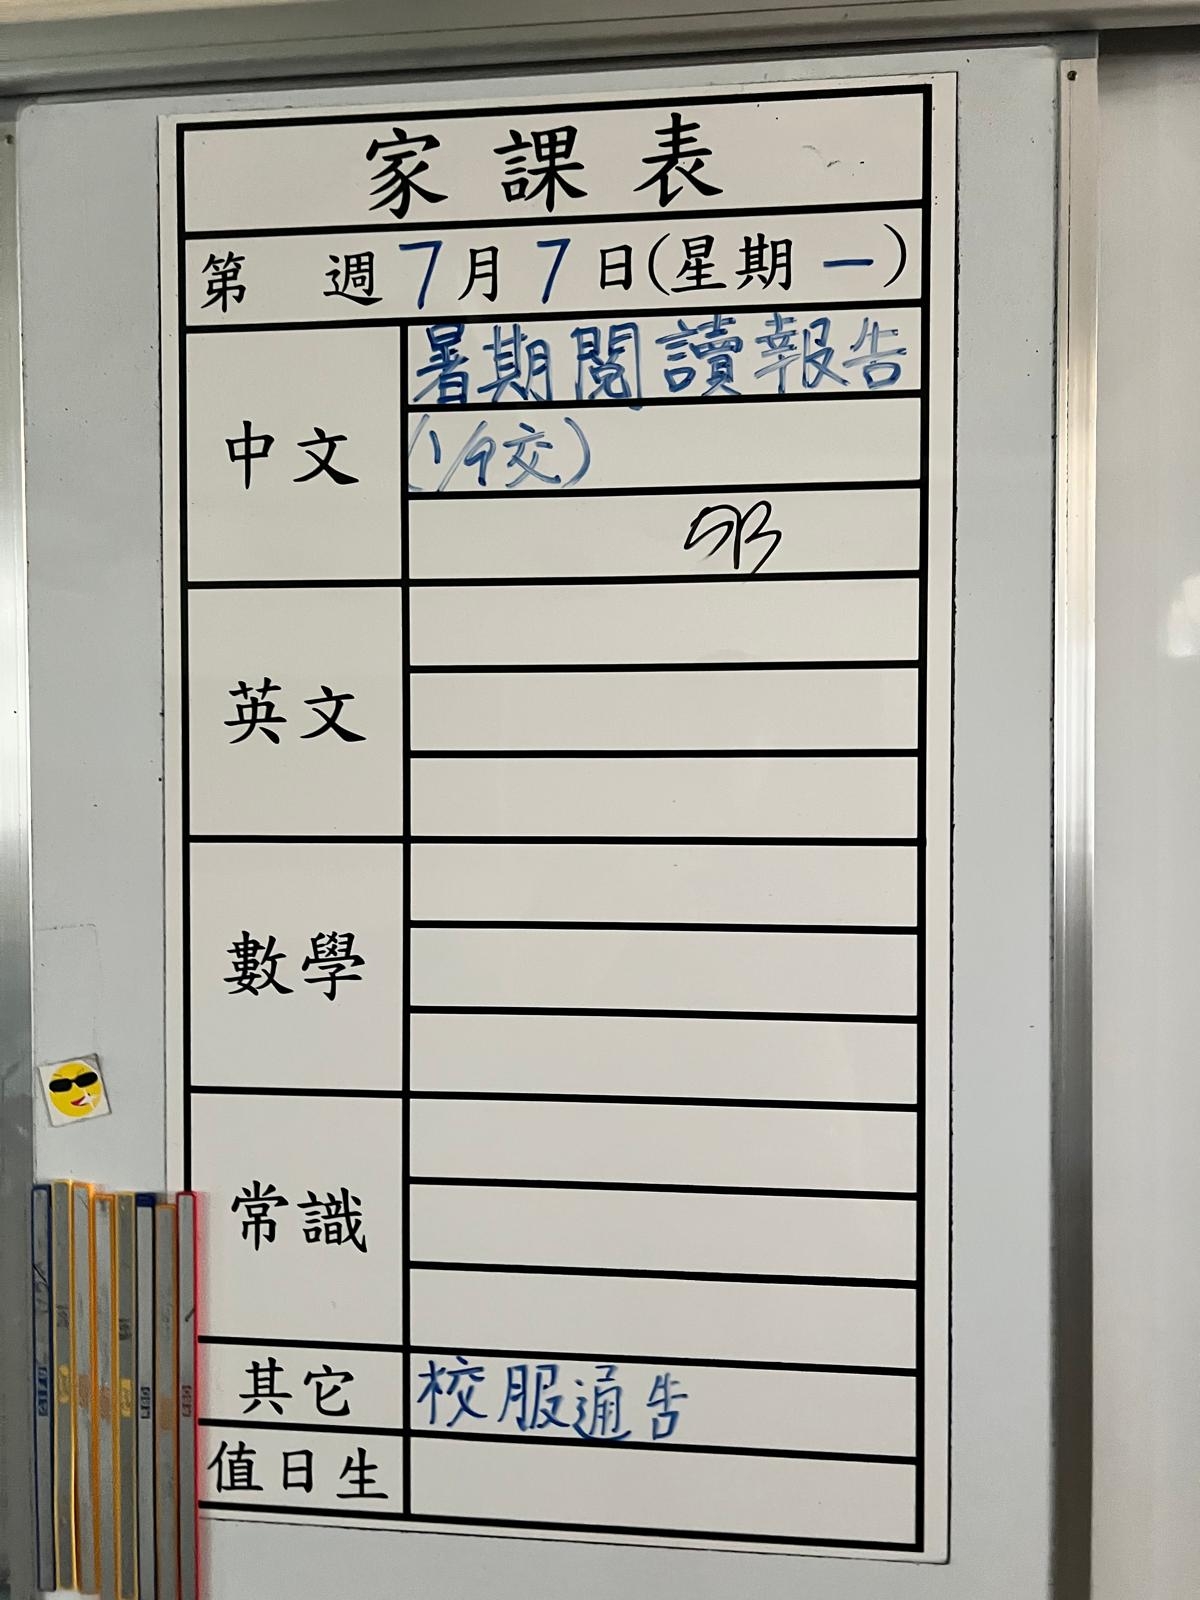 家課表
第 週7月7日(星期一)
中文
暑期閱讀報告
(1/9交)
英文
數學
常識
其它 校服通告
值日生